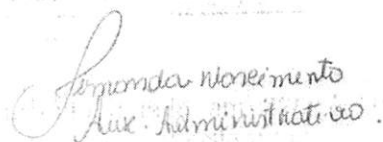 Fernanda Nascimento
Aux. Administrativo.